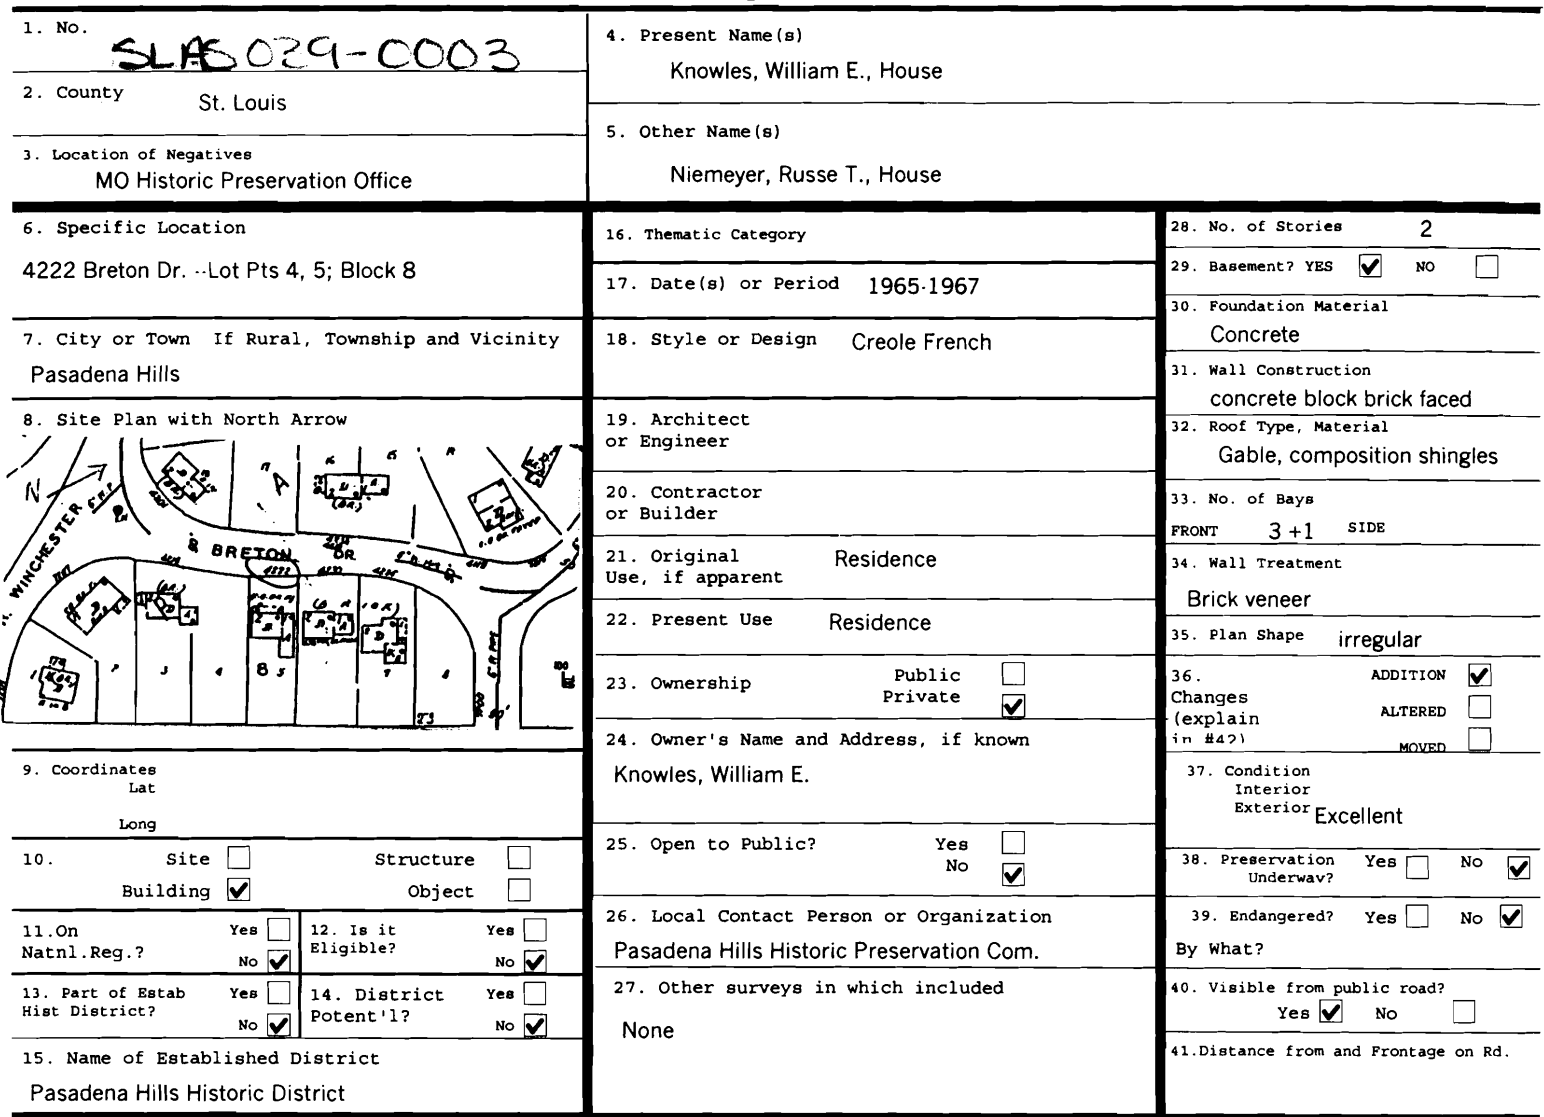 1. No.
SLAS029-0003
2. County
St. Louis
3. Location of Negatives
MO Historic Preservation Office
4. Present Name(s)
Knowles, William E., House
5. Other Name(s)
Niemeyer, Russe T., House
6. Specific Location
4222 Breton Dr. --Lot Pts 4, 5; Block 8
7. City or Town If Rural, Township and Vicinity
Pasadena Hills
8. Site Plan with North Arrow
N
WINCHESTER
BRETON DR
A
8
4222
9. Coordinates
Lat
Long
10. Site Structure
Building Object
11.On Yes
Natnl.Reg.? No
12. Is it Yes
Eligible? No
13. Part of Estab Yes
Hist District? No
14. District Yes
Potent'l? No
15. Name of Established District
Pasadena Hills Historic District
16. Thematic Category
17. Date(s) or Period 1965-1967
18. Style or Design Creole French
19. Architect
or Engineer
20. Contractor
or Builder
21. Original Residence
Use, if apparent
22. Present Use Residence
23. Ownership Public
Private
24. Owner's Name and Address, if known
Knowles, William E.
25. Open to Public? Yes
No
26. Local Contact Person or Organization
Pasadena Hills Historic Preservation Com.
27. Other surveys in which included
None
28. No. of Stories 2
29. Basement? YES NO
30. Foundation Material
Concrete
31. Wall Construction
concrete block brick faced
32. Roof Type, Material
Gable, composition shingles
33. No. of Bays
FRONT 3 +1 SIDE
34. Wall Treatment
Brick veneer
35. Plan Shape irregular
36. ADDITION
Changes
(explain ALTERED
in #42)
MOVED
37. Condition
Interior
Exterior Excellent
38. Preservation Yes No
Underway?
39. Endangered? Yes No
By What?
40. Visible from public road?
Yes No
41.Distance from and Frontage on Rd.